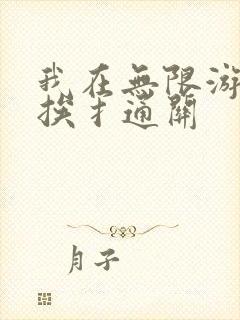 我在無限游
挨才通關
月子